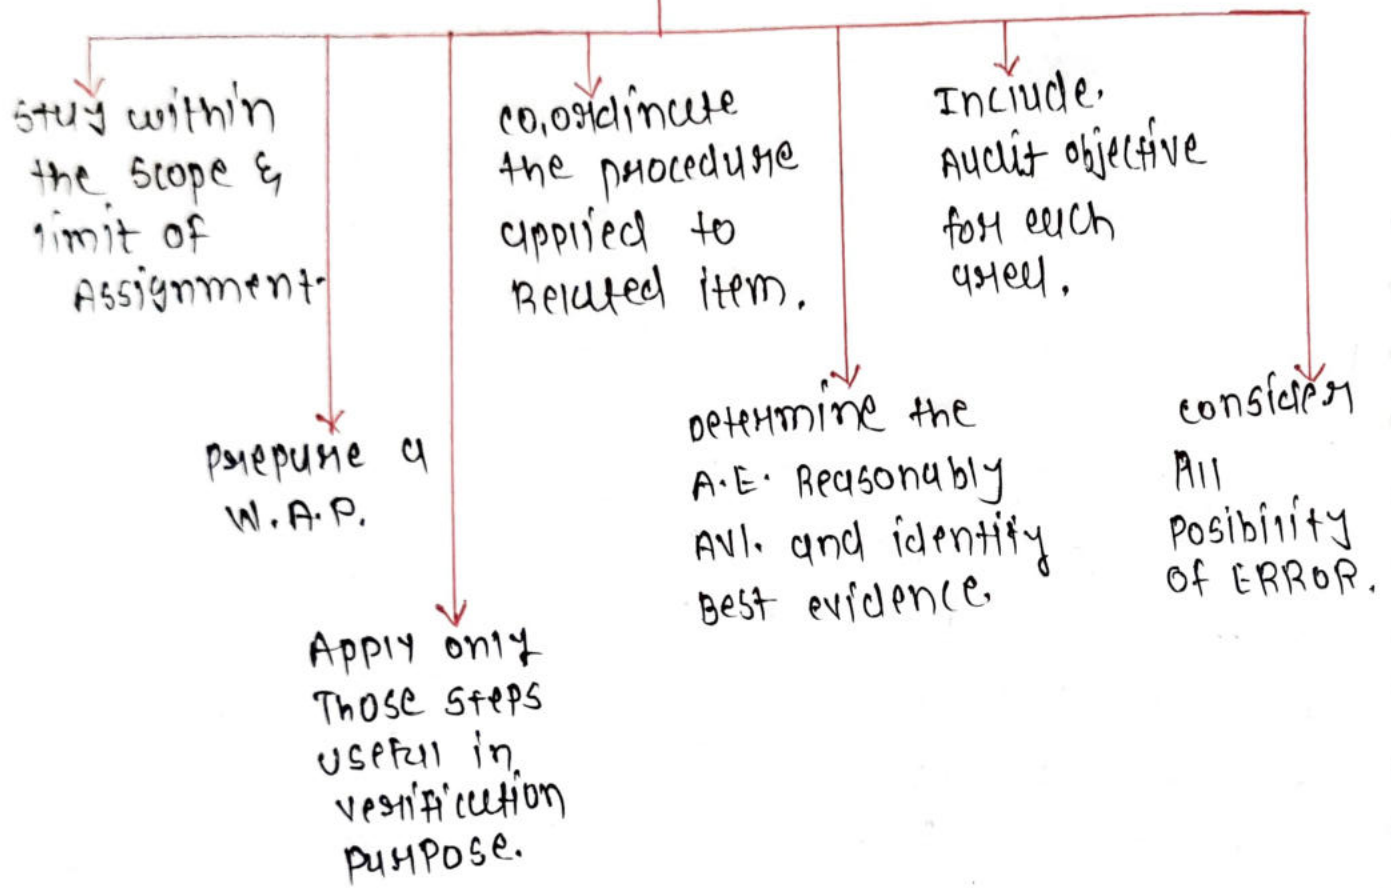 Stay within
the scope &
limit of
Assignment.
Prepare a
W.A.P.
Apply only
Those steps
usefull in
verification
purpose.
co.ordinate
the procedure
applied to
Related item.
Determine the
A.E. Reasonably
Avl. and identify
Best evidence.
Include.
Audit objective
for each
area.
consider
All
Posibility
of ERROR.